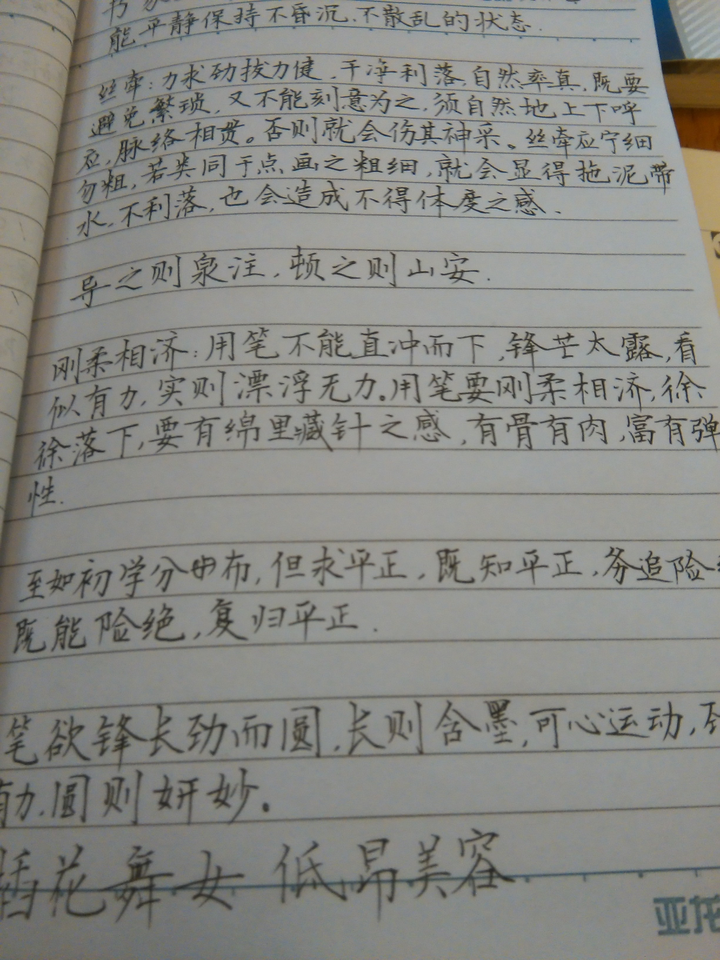 能平静保持不昏沉.不散乱的状态.
丝牵:力求劲拔力健,干净利落,自然率真,既要
避免繁琐,又不能刻意为之,须自然地上下呼
应,脉络相贯。否则就会伤其神采。丝牵应宁细
勿粗,若类同于点画之粗细,就会显得拖泥带
水,不利落,也会造成不得体度之感.
导之则泉注,顿之则山安.
刚柔相济:用笔不能直冲而下,锋芒太露,看
似有力,实则漂浮无力。用笔要刚柔相济,徐
徐落下,要有绵里藏针之感,有骨有肉,富有弹
性.
至如初学分布,但求平正,既知平正,务追险
既能险绝,复归平正.
笔欲锋长劲而圆,长则含墨,可心运动,
有力.圆则妍妙。
插花舞女 低昂美容
亚龙